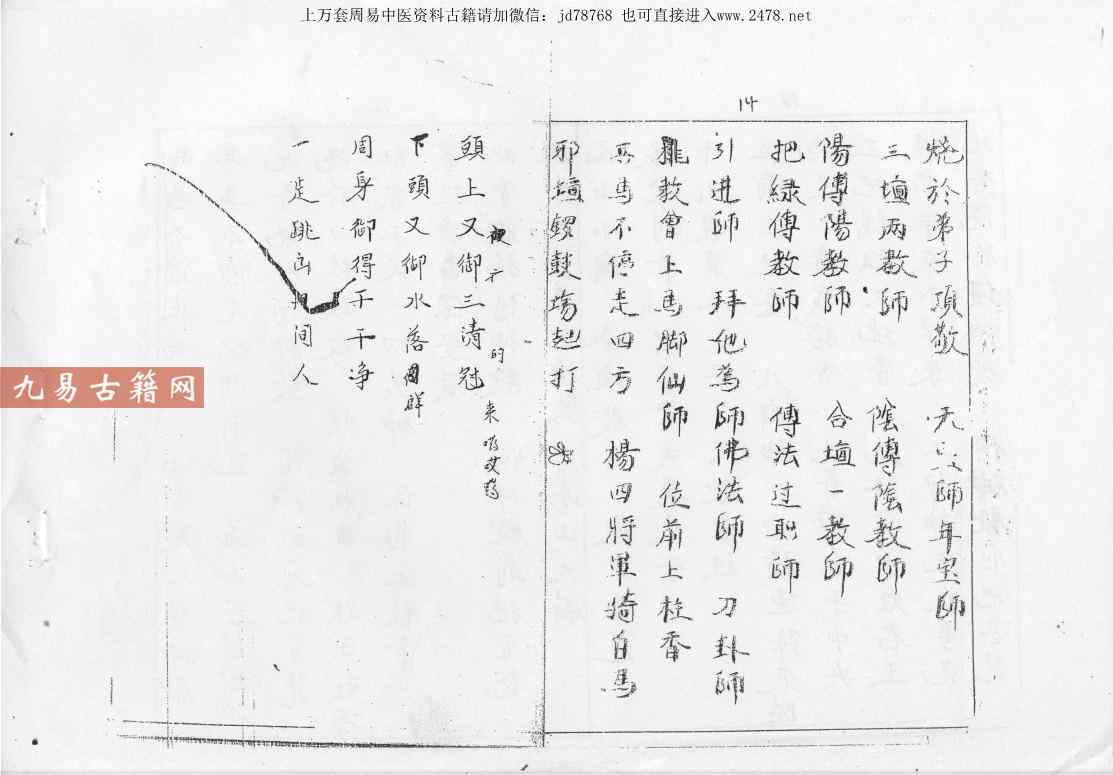 上万套周易中医资料古籍请加微信：jd78768 也可直接进入www.2478.net
14
燒於弟子項敬 師年宝師
三壇兩教師 陰傳陰教師
陽傳陽教師 合壇一教師
把綠傳教師 傳法过职師
引进師 拜他為師佛法師 刀卦師
教會上馬脚仙師 位前上柱香
馬不停走四方 楊四將軍猗白馬
邪壇鑼鼓塲起打
頭上又御三清冠
的
下頭又御水落
周身御得干干净
一足跳出 间人
九易古籍网